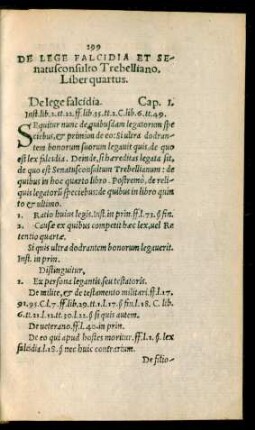 199
DE LEGE FALCIDIA ET SE-
natusconsulto Trebelliano,
Liber quartus.
De lege falcidia. Cap. 1.
Inst.lib.2.tt.22.ff.lib.35.tt.2.C.lib.6.tt.49.
SEquitur nunc de quibusdam legatorum spe
ciebus, & primum de eo: Si ultra dodran-
tem bonorum suorum legauit quis, de quo
est lex falcidia. Deinde, si hæreditas legata sit,
de quo est Senatusconsultum Trebellianum: de
quibus in hoc quarto libro. Postremò, de reli-
quis legatorũ speciebus: de quibus in libro quin
to & ultimo.
1. Ratio huius legis. Inst.in prin.ff.l.72.§ fin.
2. Causæ ex quibus competit hæc lex, uel Re
tentio quartæ.
Si quis ultra dodrantem bonorum legauerit.
Inst. in prin.
Distinguitur,
1. Ex persona legantis, seu testatoris.
De milite, & de testamento militari. ff.l.17.
92.95.C.l.7.ff.lib.29.tt.1.l.17.§ fin.l.18. C. lib.
6.tt.21.l.12.tt.30.l.22.§ si quis autem.
De ueterano. ff.l.40.in prin.
De eo qui apud hostes moritur. ff.l.1.§. lex
falcidia.l.18.§ nec huic contrarium.
De filio-